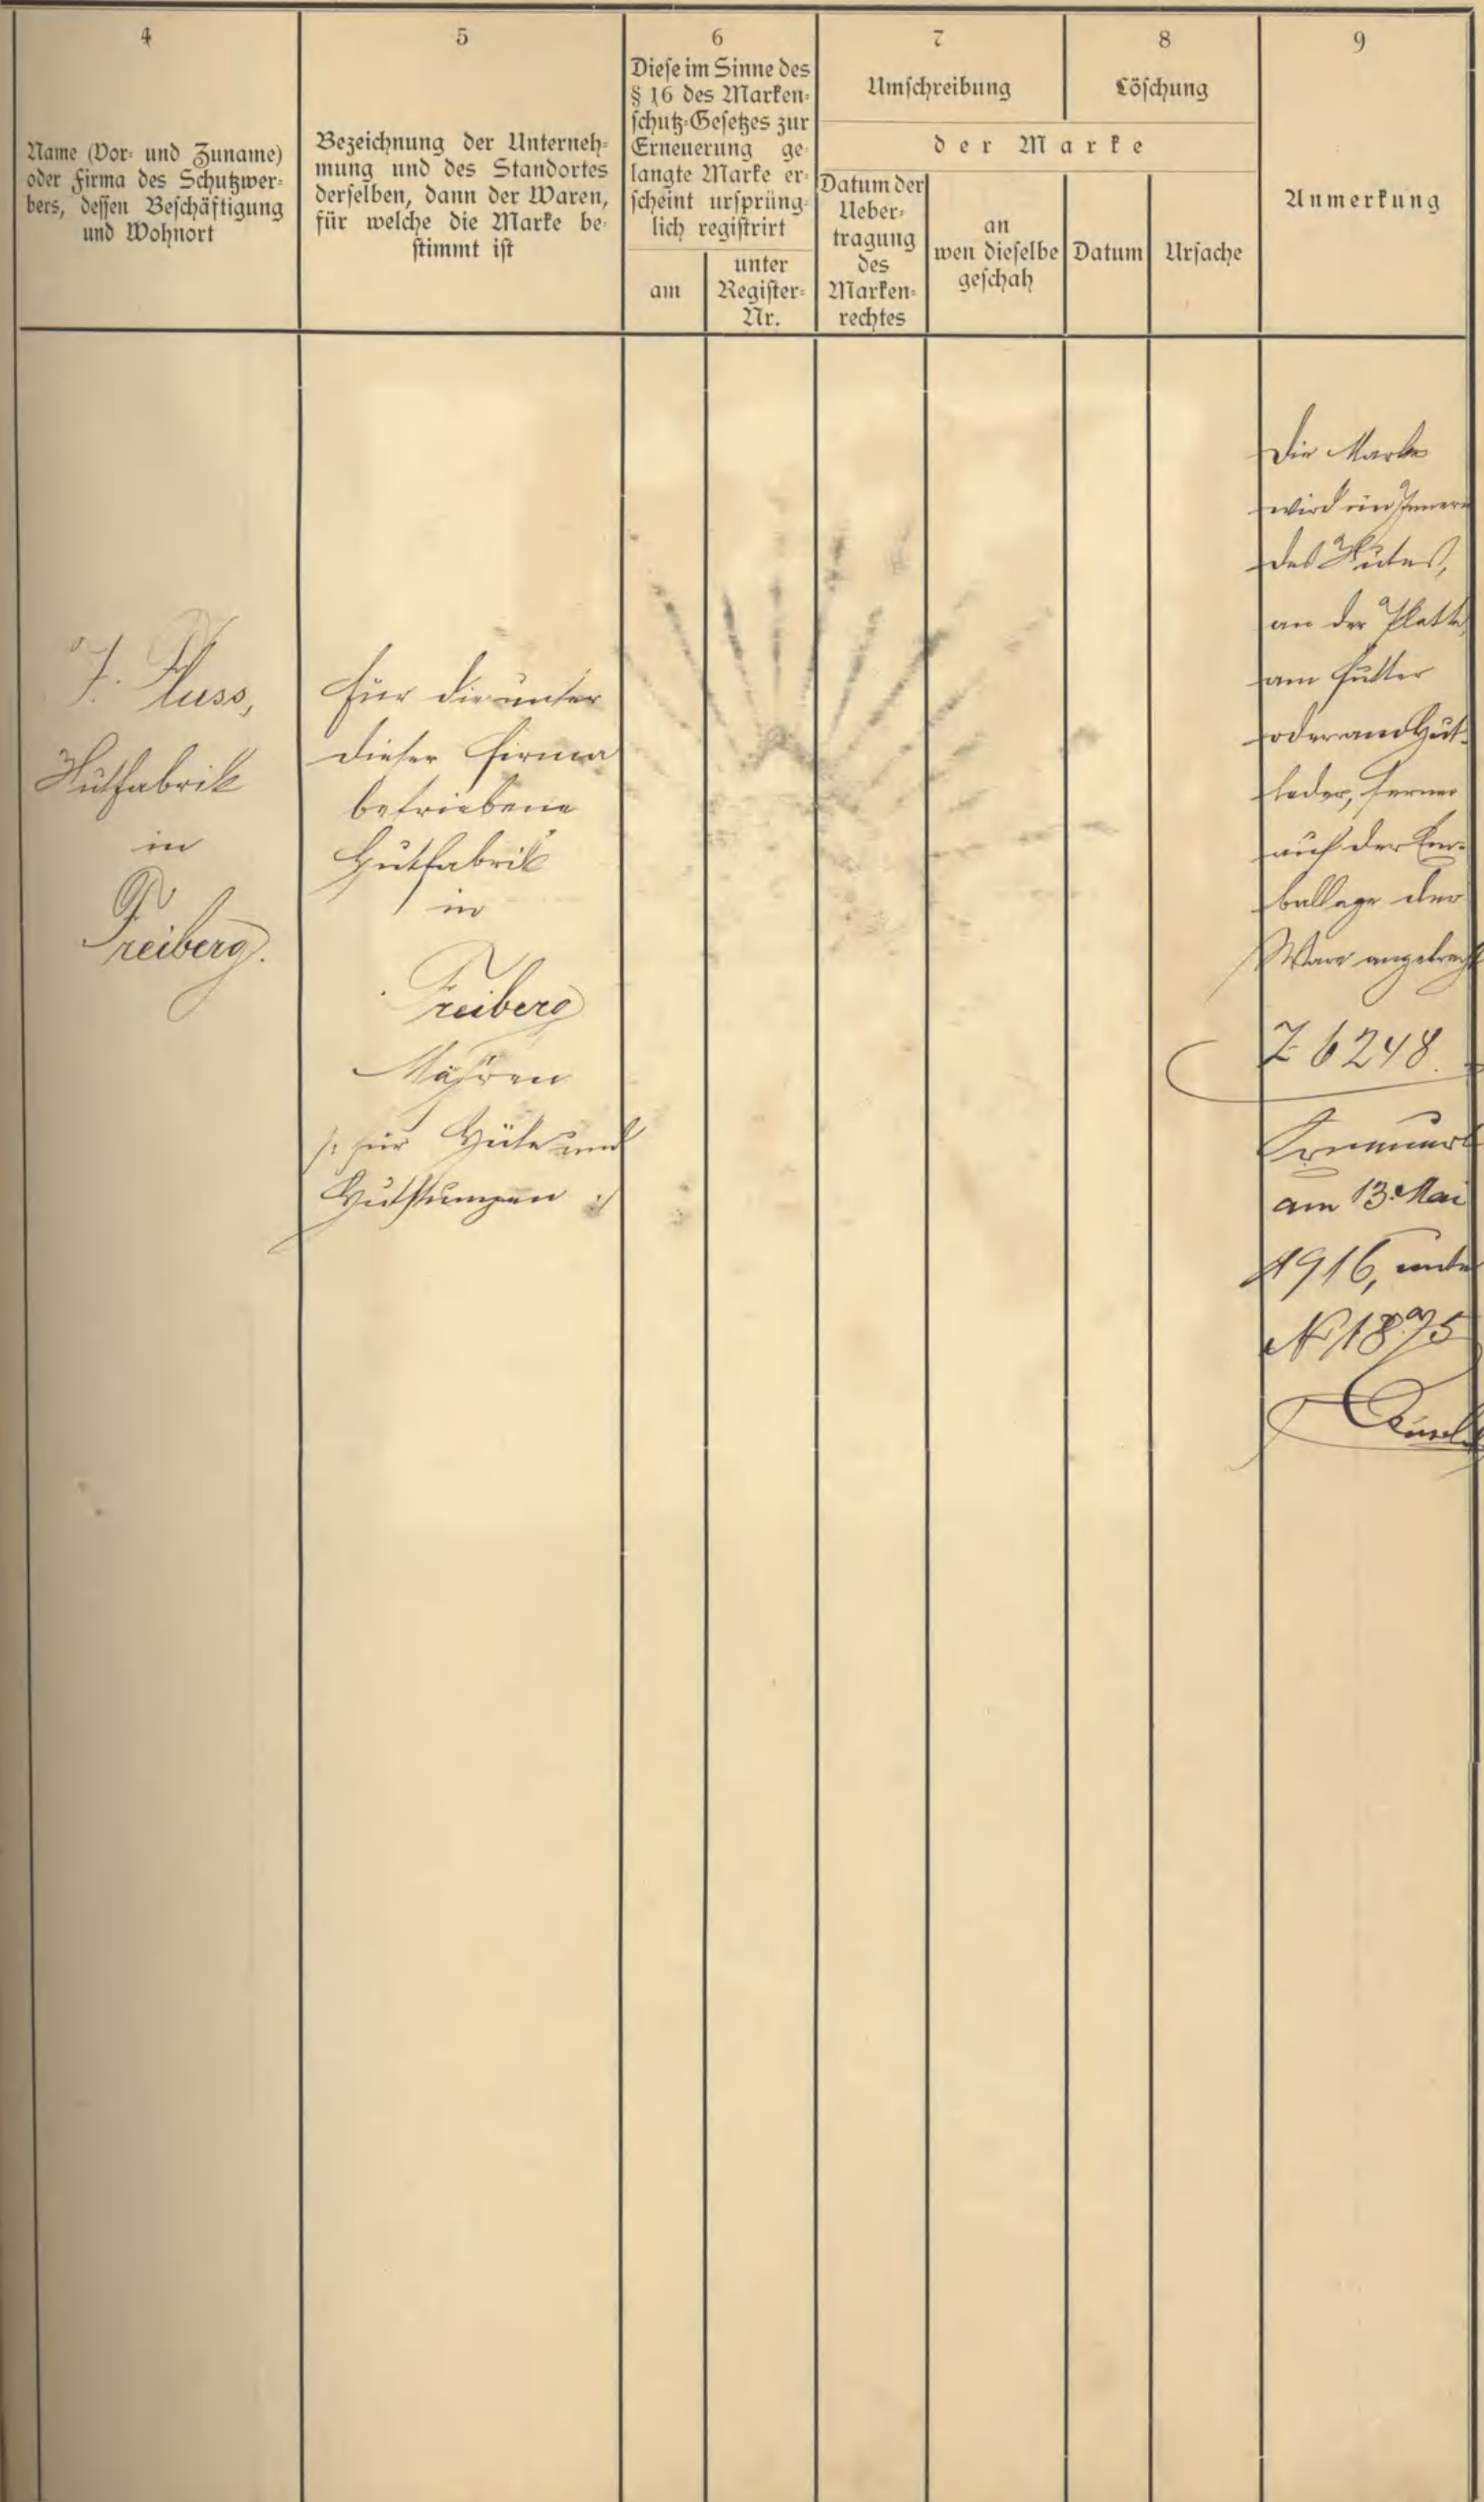 4
Name (Vor- und Zuname)
oder Firma des Schutzwer-
bers, dessen Beschäftigung
und Wohnort
5
Bezeichnung der Unterneh-
mung und des Standortes
derselben, dann der Waren,
für welche die Marke be-
stimmt ist
6
Diese im Sinne des
§ 16 des Marken-
schutz-Gesetzes zur
Erneuerung ge-
langte Marke er-
scheint ursprüng-
lich registrirt
am
unter
Register-
Nr.
7
Umschreibung
8
Löschung
der Marke
Datum der
Ueber-
tragung
des
Marken-
rechtes
an
wen dieselbe
geschah
Datum
Ursache
9
Anmerkung
J. Fluss,
Hutfabrik
in
Freiberg.
Für die unter
dieser Firma
betriebene
Hutfabrik
in
Freiberg
Mähren
/: für Hüte und
Hutstumpen :/
Die Marke
wird im Innern
des Hutes,
an der Platte,
am Futter
oder am Hut-
leder, ferner
auf der Em-
ballage der
Ware angebracht
Z 6248.
Erneuert
am 13. Mai
1916, unter
N 1875